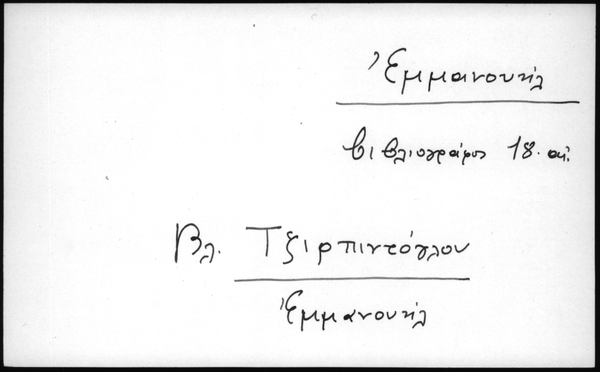 Ἐμμανουήλ
βιβλιογράφος 18. αἰ.
Βλ. Τζιρπιντόγλου
Ἐμμανουήλ